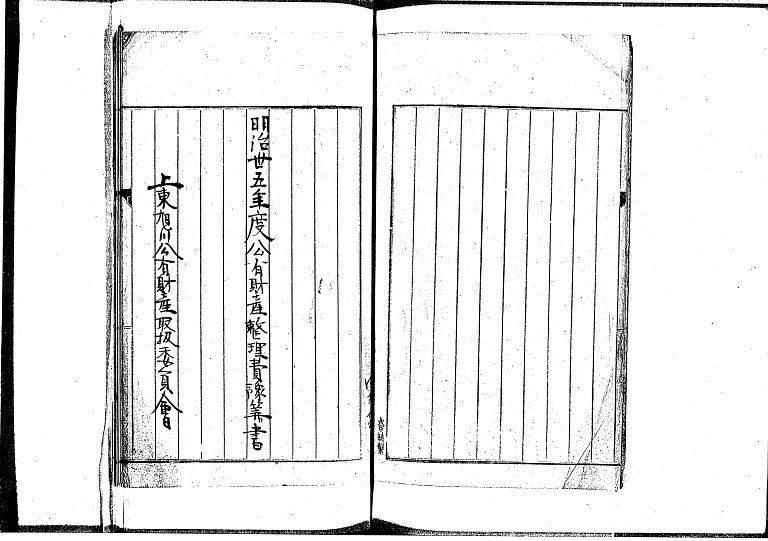 明治丗五年度公有財産整理費豫算書
上東旭川公有財産取扱委員會